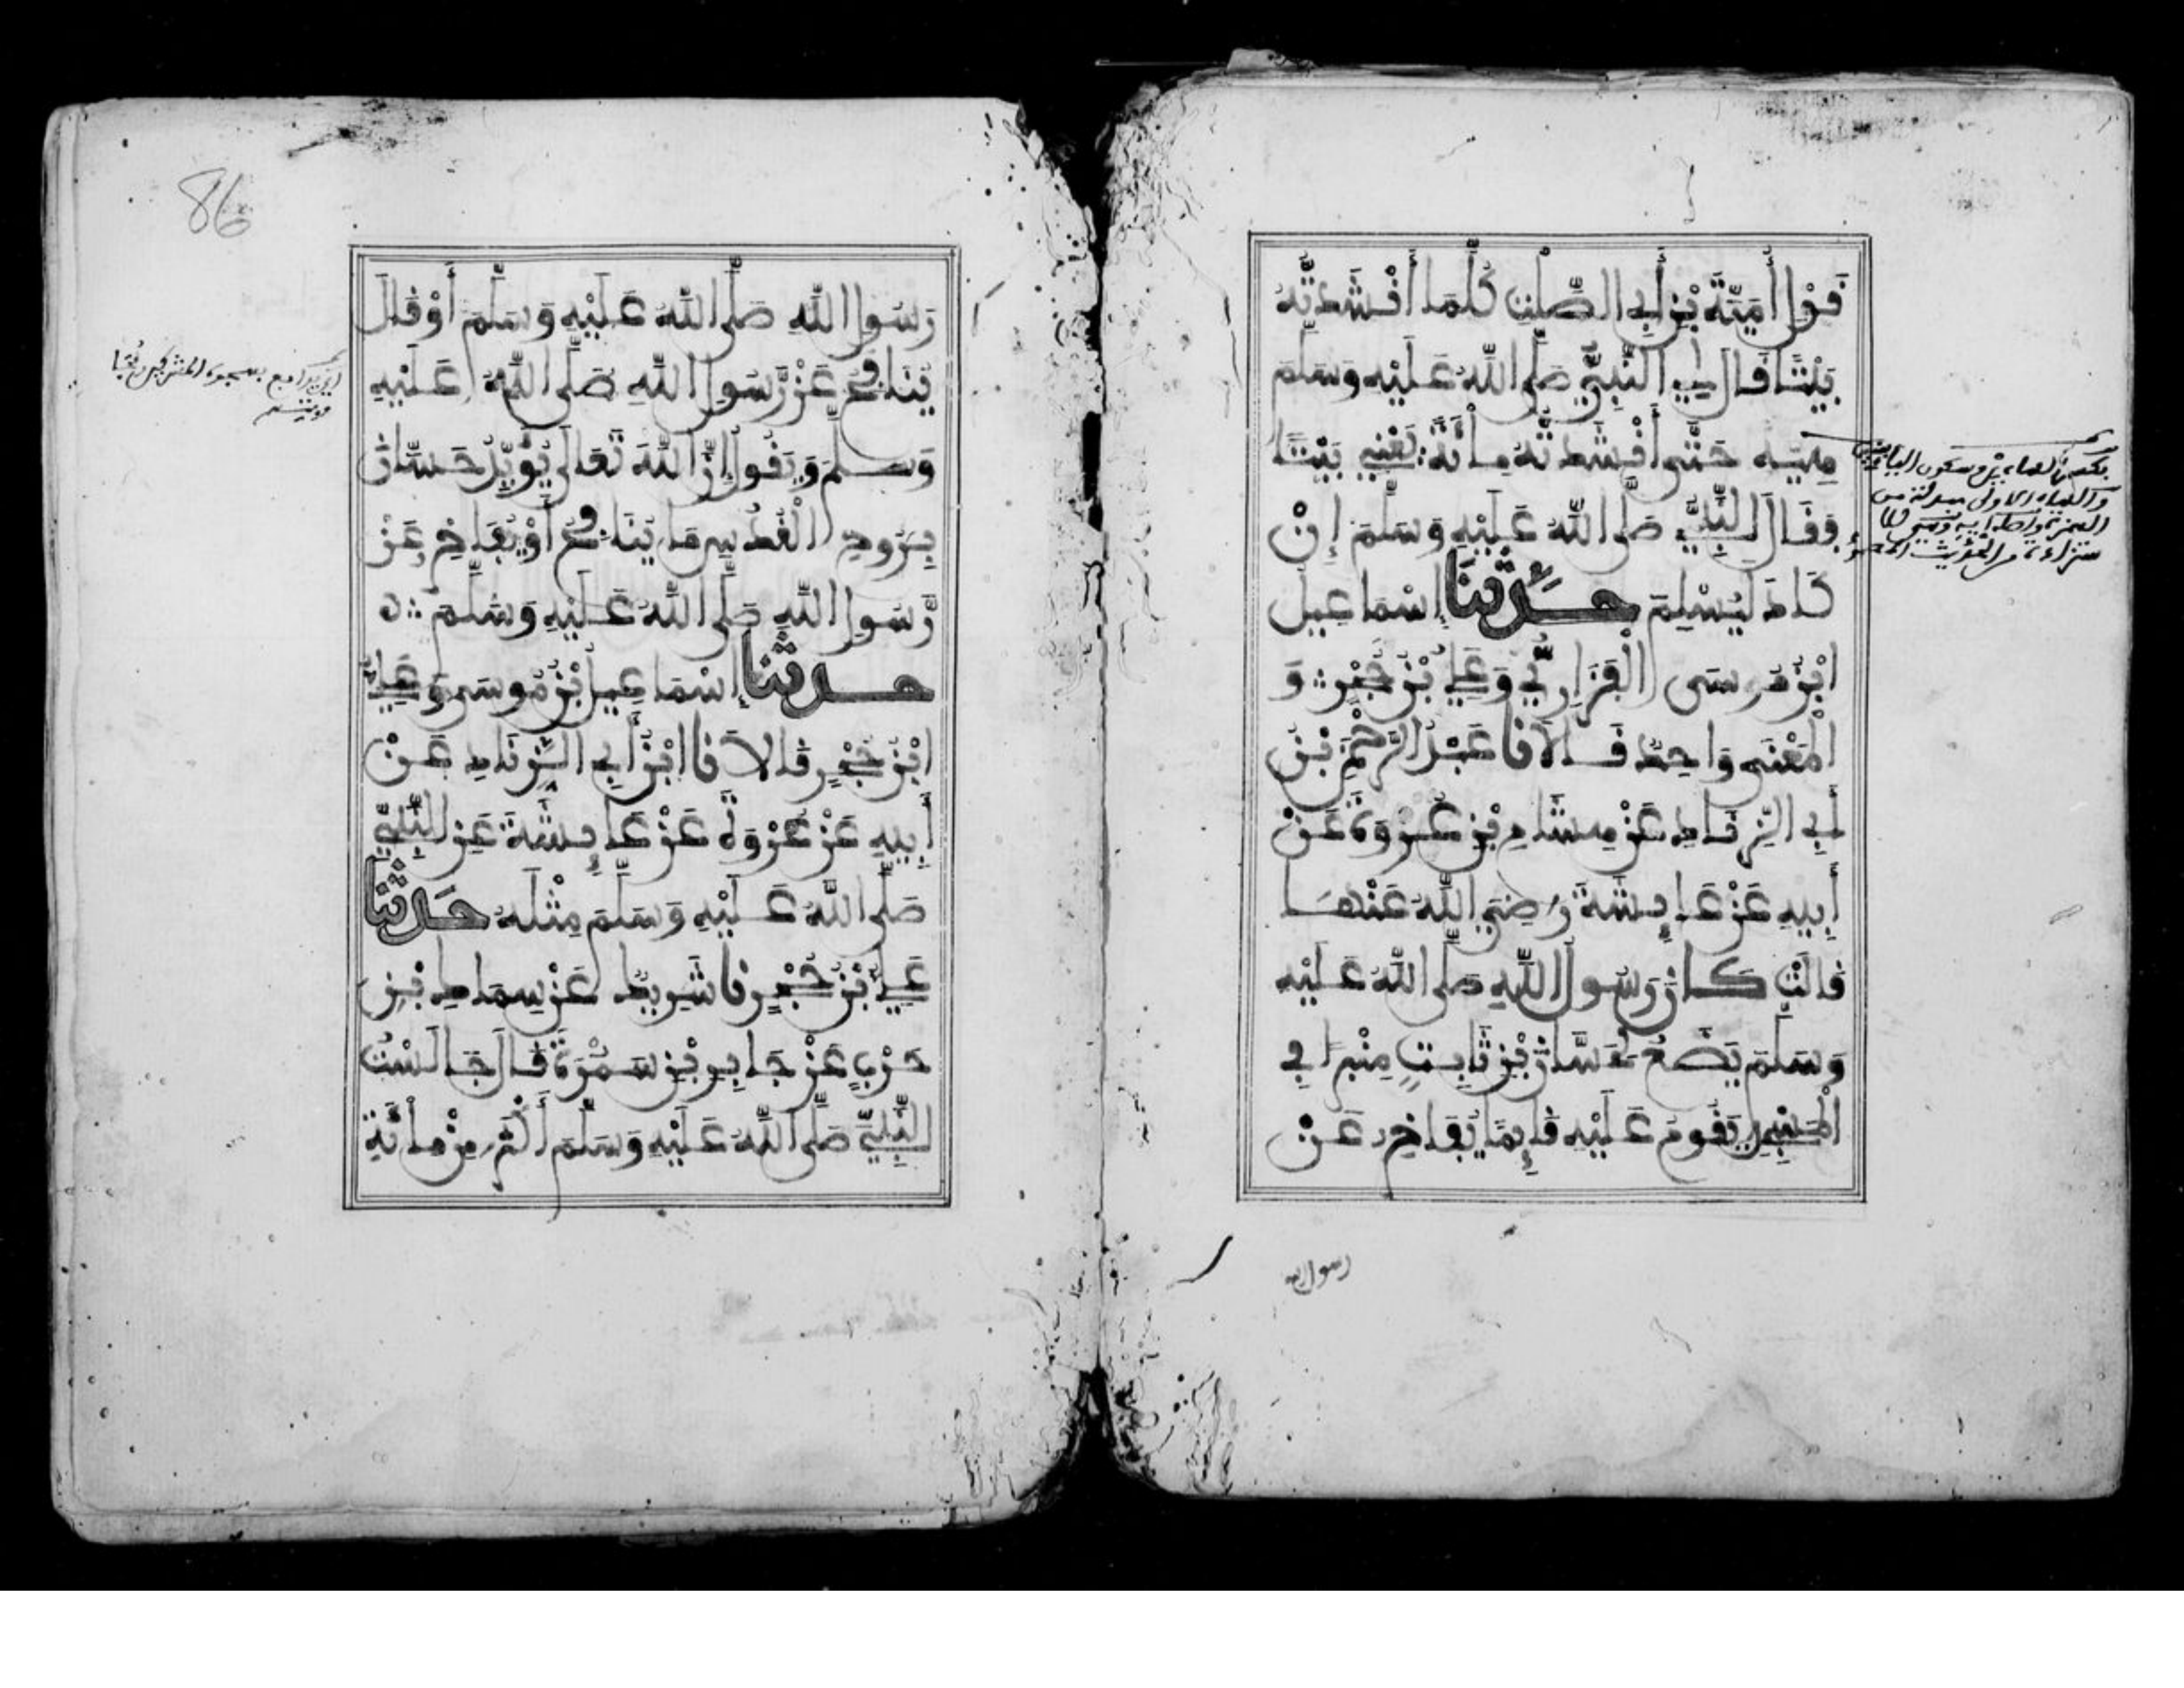 قَوْلِ أُمَيَّةَ بْنِ أَبِي الصَّلْتِ كُلَّمَا أَنْشَدتُّهُ
بَيْتًا قَالَ لِي النَّبِيُّ صَلَّى اللَّهُ عَلَيْهِ وَسَلَّمَ
هِيهِ حَتَّى أَنْشَدتُّهُ مِائَةً يَعْنِي بَيْتًا
فَقَالَ النَّبِيُّ صَلَّى اللَّهُ عَلَيْهِ وَسَلَّمَ إِنْ
كَادَ لَيُسْلِمُ حَدَّثَنَا إِسْمَاعِيلُ
ابْنُ مُوسَى الْفَزَارِيُّ وَعَلِيُّ بْنُ حُجْرٍ وَ
الْمَعْنَى وَاحِدٌ قَالَا نَا عَبْدُ الرَّحْمَنِ بْنُ
أَبِي الزِّنَادِ عَنْ هِشَامِ بْنِ عُرْوَةَ عَنْ
أَبِيهِ عَنْ عَائِشَةَ رَضِيَ اللَّهُ عَنْهَا
قَالَتْ كَانَ رَسُولُ اللَّهِ صَلَّى اللَّهُ عَلَيْهِ
وَسَلَّمَ يَضَعُ لِحَسَّانَ بْنِ ثَابِتٍ مِنْبَرًا فِي
الْمَسْجِدِ يَقُومُ عَلَيْهِ قَائِمًا يُفَاخِرُ عَنْ
رسول الله
رَسُولِ اللَّهِ صَلَّى اللَّهُ عَلَيْهِ وَسَلَّمَ أَوْ قَالَ
يُنَافِحُ عَنْ رَّسُولِ اللَّهِ صَلَّى اللَّهُ عَلَيْهِ
وَسَلَّمَ وَيَقُولُ إِنَّ اللَّهَ تَعَالَى يُؤَيِّدُ حَسَّانَ
بِرُوحِ الْقُدُسِ مَا يُنَافِحُ أَوْ يُفَاخِرُ عَنْ
رَّسُولِ اللَّهِ صَلَّى اللَّهُ عَلَيْهِ وَسَلَّمَ
حَدَّثَنَا إِسْمَاعِيلُ بْنُ مُوسَى وَعَلِيُّ
ابْنُ حُجْرٍ قَالَا نَا ابْنُ أَبِي الزِّنَادِ عَنْ
أَبِيهِ عَنْ عُرْوَةَ عَنْ عَائِشَةَ عَنِ النَّبِيِّ
صَلَّى اللَّهُ عَلَيْهِ وَسَلَّمَ مِثْلَهُ حَدَّثَنَا
عَلِيُّ بْنُ حُجْرٍ نَا شَرِيكٌ عَنْ سِمَاكِ بْنِ
حَرْبٍ عَنْ جَابِرِ بْنِ سَمُرَةَ قَالَ جَالَسْتُ
النَّبِيَّ صَلَّى اللَّهُ عَلَيْهِ وَسَلَّمَ أَكْثَرَ مِنْ مِائَةِ
86